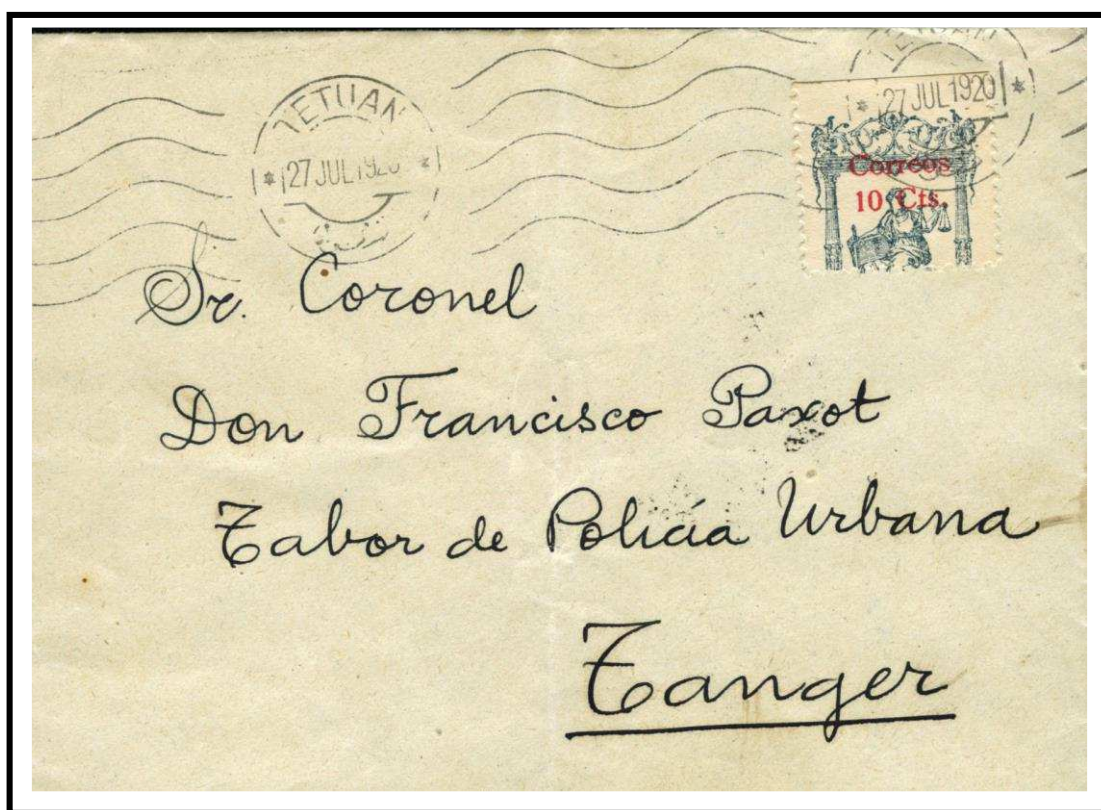 TETUAN
27 JUL 1920
TETUAN
27 JUL 1920
Correos
10 Cts.
Sr. Coronel
Don Francisco Paxot
Tabor de Policía Urbana
Tanger